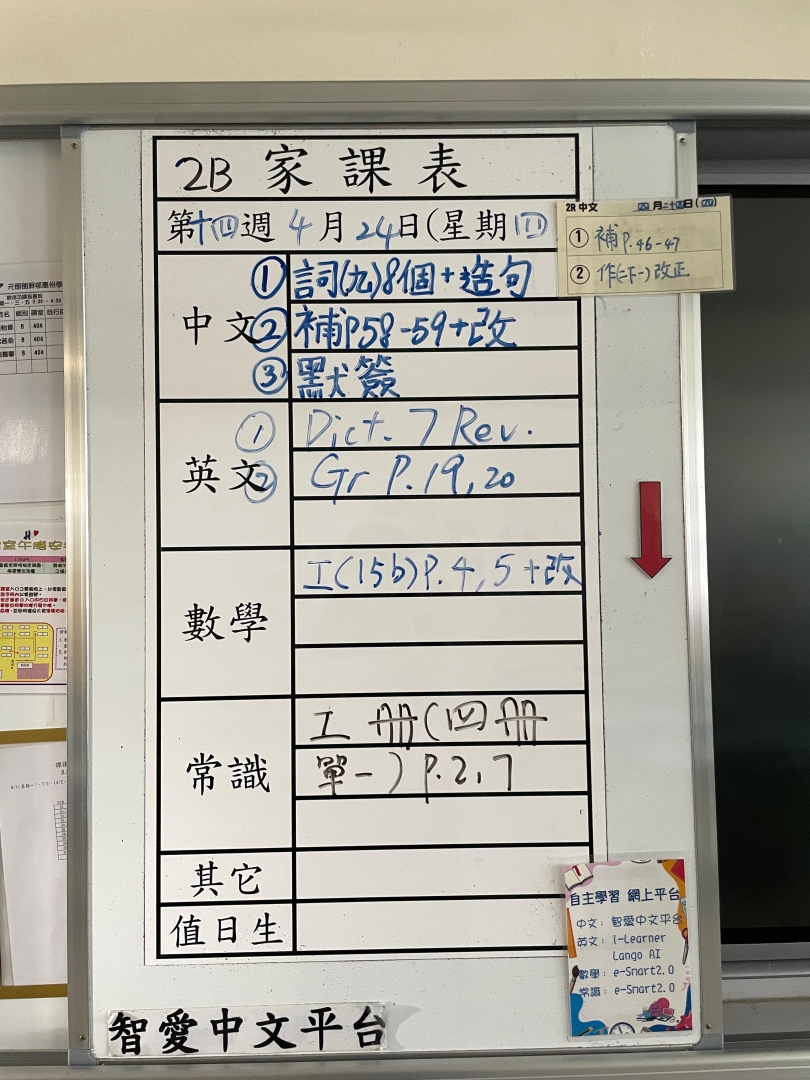 2B 家課表
第十四週 4月24日(星期四
中文
① 詞(九)8個+造句
② 補P58-59+改
③ 默簽
英文
① Dict. 7 Rev.
② Gr P.19,20
數學
工(15b)P.4,5+改
常識
工冊(四冊
單一)P.2,7
其它
值日生
2R 中文 四月二十四日(四)
① 補P.46-47
② 作(二下一)改正
自主學習 網上平台
中文: 智愛中文平台
英文: i-Learner
Lango AI
數學: e-Smart2.0
常識: e-Smart2.0
智愛中文平台